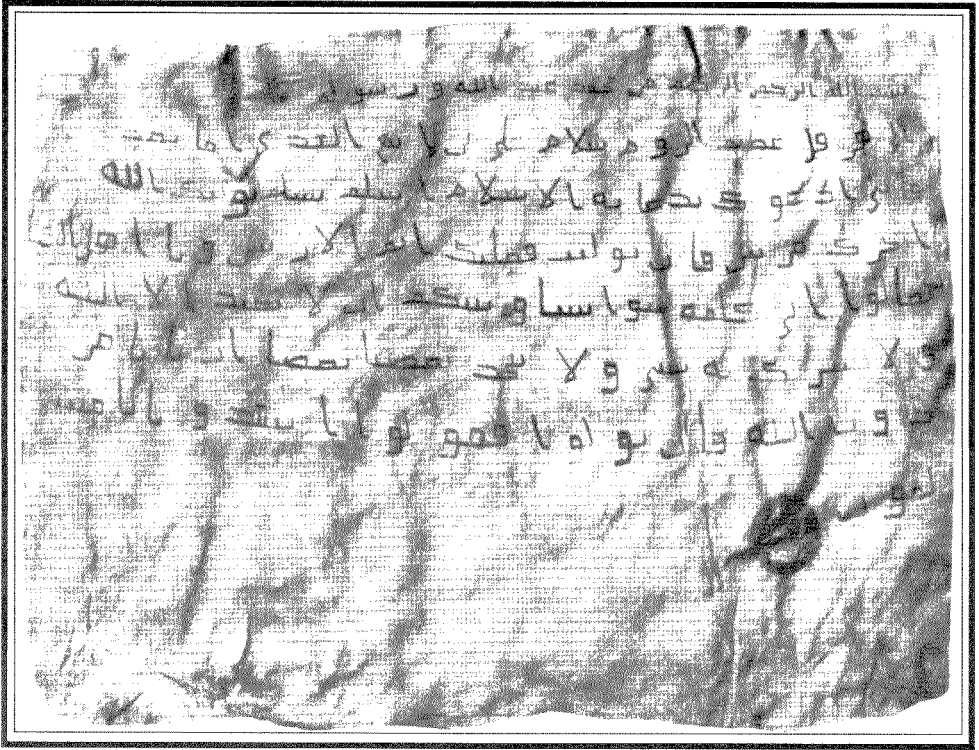 بسم الله الرحمن الرحيم من محمد عبد الله ورسوله
هرقل عظيم الروم سلام على من اتبع الهدى اما بعد
فانى ادعوك بدعاية الاسلام اسلم تسلم يوتك الله
اجرك مرتين فان توليت فعليك اثم الاريسين ويا اهل
تعالوا الى كلمة سوا بيننا وبينكم ان لا نعبد الا الله
و لا نشرك به ولا يتخذ بعضنا بعضا اربابا من
دون الله فان تولوا فقولوا اشهدوا بانا مسـ
لمون